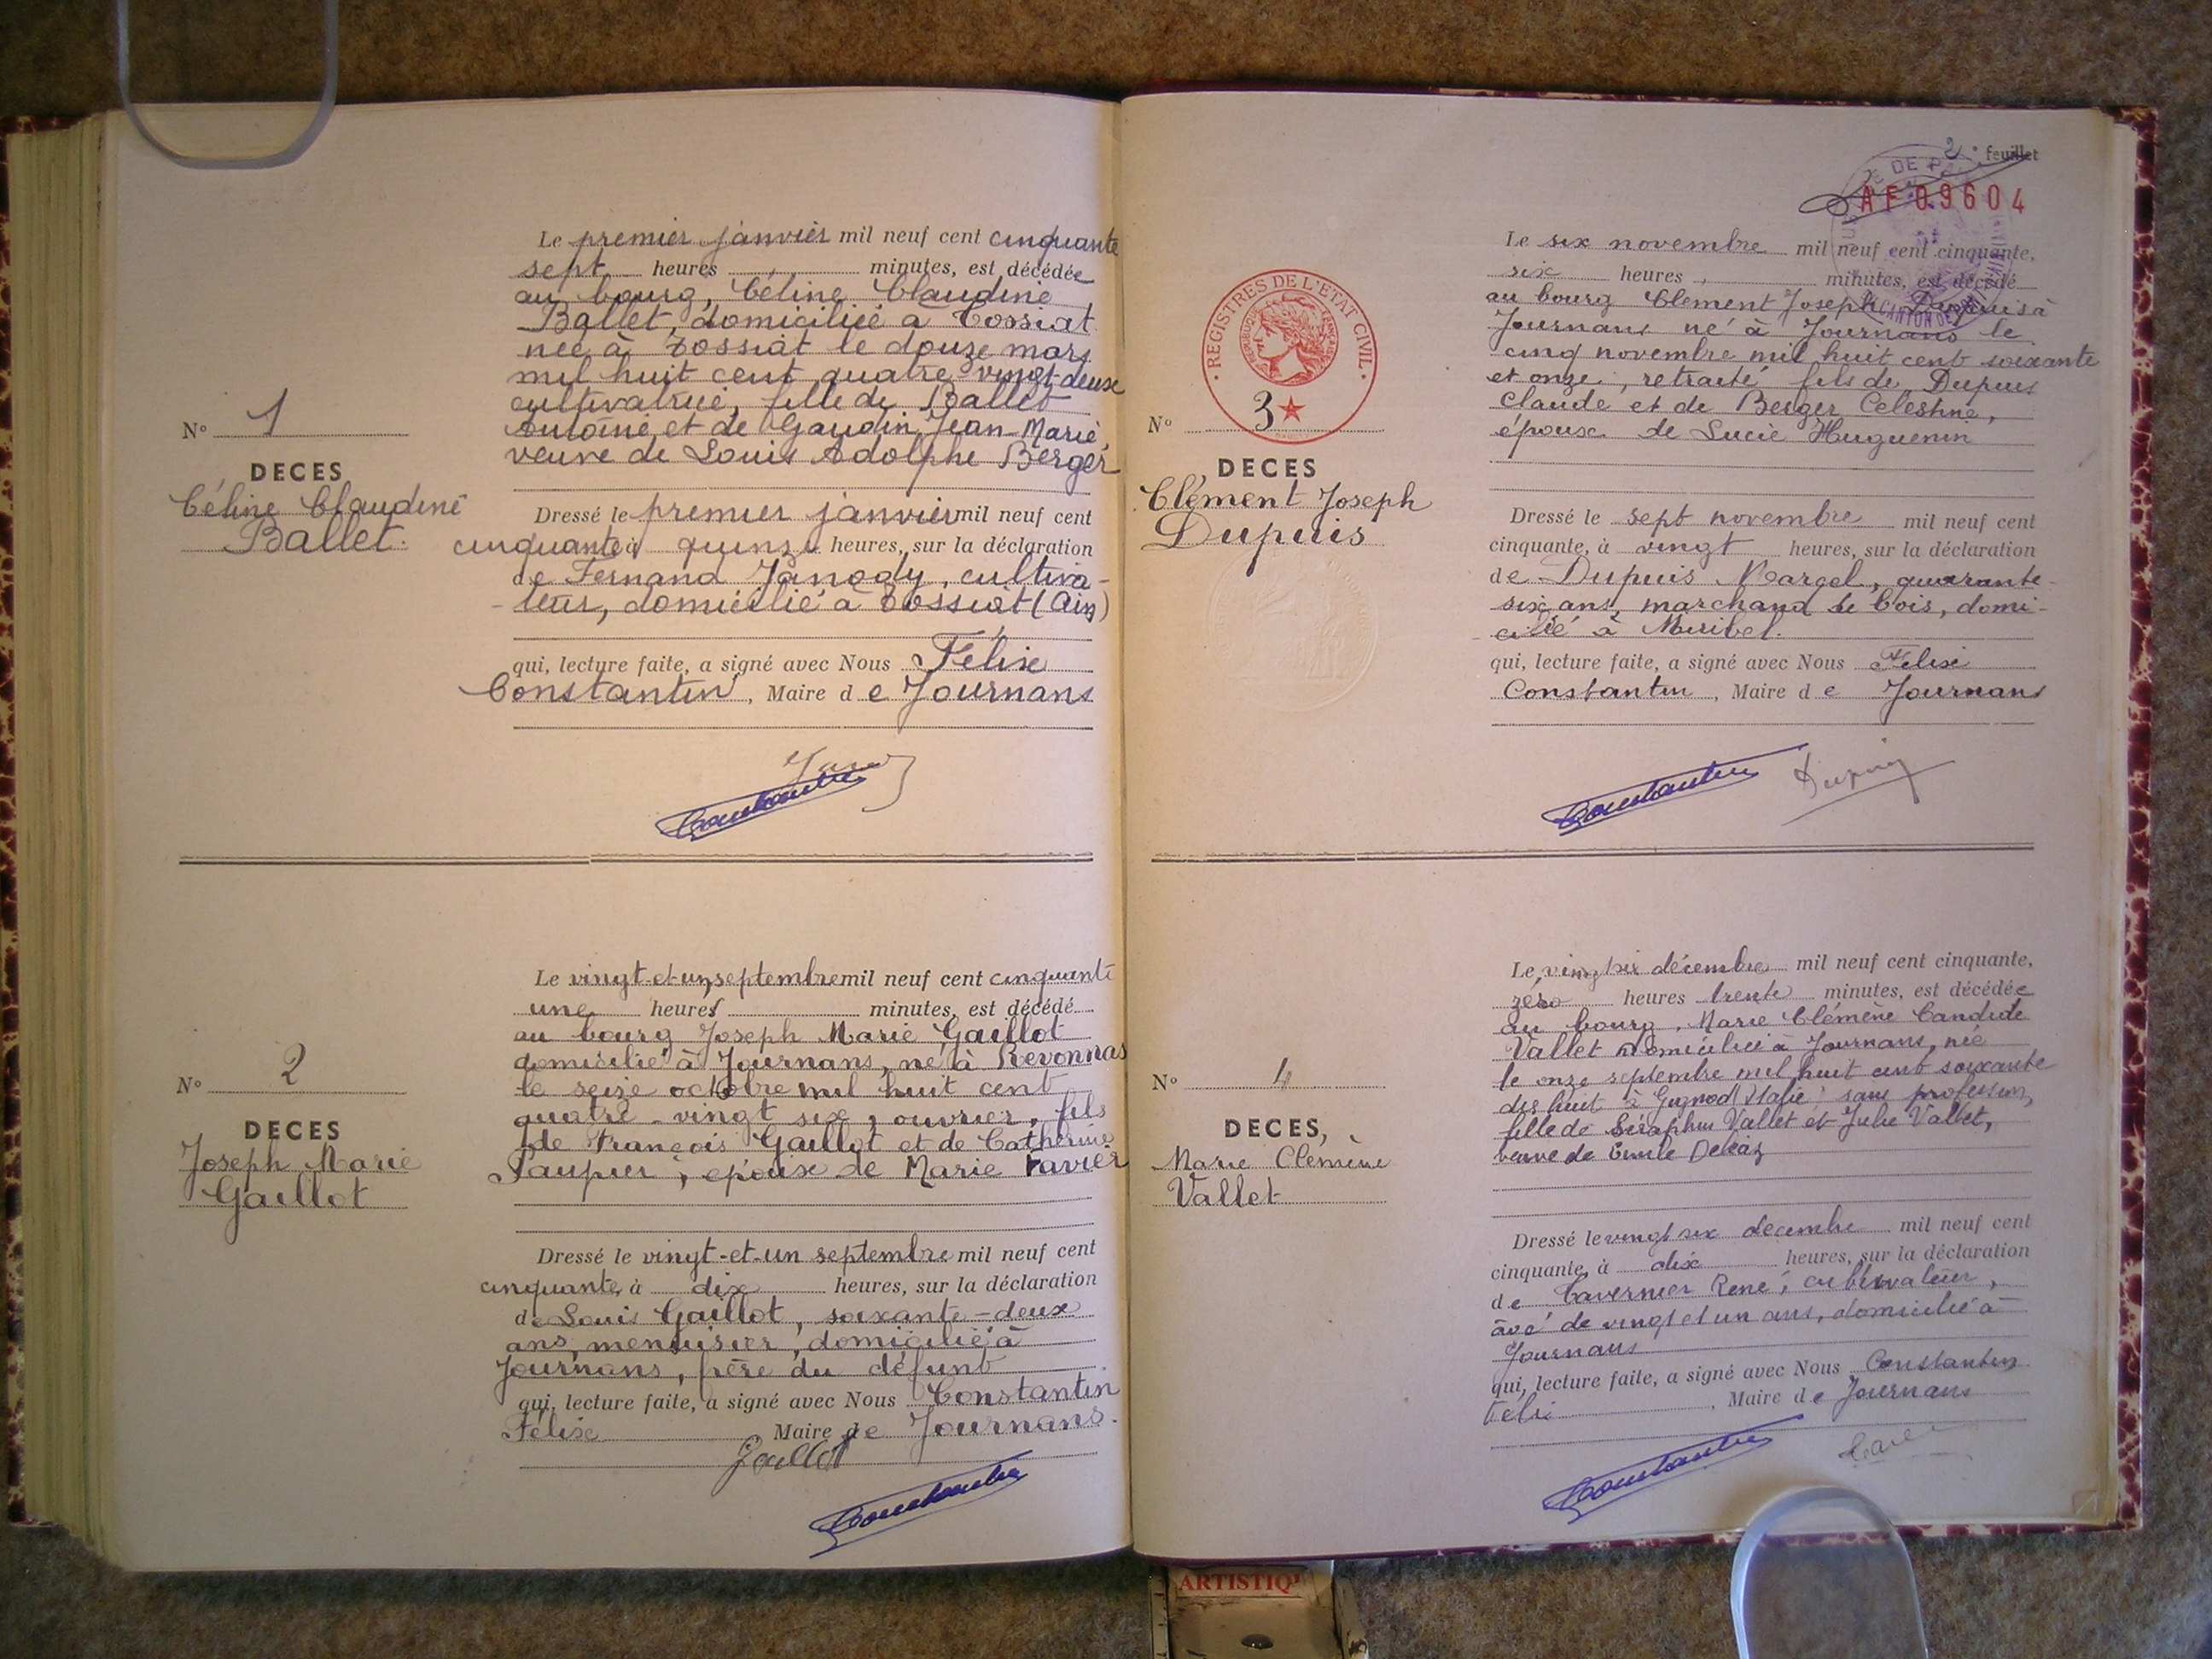 Le premier janvier mil neuf cent cinquante
sept heures minutes, est décédée
au bourg, Céline Claudine
Ballet, domiciliée à Tossiat
née à Tossiat le douze mars
mil huit cent quatre-vingt-deux
cultivatrice, fille de Ballet
Antoine et de Gaudin Jean-Marie,
veuve de Louis Adolphe Berger
N° 1
DECES
Céline Claudine
Ballet.
Dressé le premier janvier mil neuf cent
cinquante à quinze heures, sur la déclaration
de Fernand Janody, cultiva-
-teur, domicilié à Tossiat (Ain)
qui, lecture faite, a signé avec Nous Félix
Constantin, Maire de Journans
Constantin
Le vingt-et-un septembre mil neuf cent cinquante
une heures minutes, est décédé
au bourg Joseph Marie Gaillot
domicilié à Journans, né à Revonnas
le seize octobre mil huit cent
quatre-vingt six, ouvrier, fils
de François Gaillot et de Catherine
Paupier, époux de Marie Ravier
N° 2
DECES
Joseph Marie
Gaillot
Dressé le vingt-et-un septembre mil neuf cent
cinquante, à dix heures, sur la déclaration
de Louis Gaillot, soixante-deux
ans, menuisier, domicilié à
Journans, frère du défunt
qui, lecture faite, a signé avec Nous Constantin
Félix Maire de Journans.
Gaillot
Constantin
2e feuillet
AF09604
Le six novembre mil neuf cent cinquante,
six heures, minutes, est décédé
au bourg Clément Joseph Dupuis à
Journans né à Journans le
cinq novembre mil huit cent soixante
et onze, retraité, fils de Dupuis
Claude et de Berger Célestine,
époux de Lucie Huguenin
REGISTRES DE L'ETAT CIVIL
N° 3
DECES
Clément Joseph
Dupuis
Dressé le sept novembre mil neuf cent
cinquante, à vingt heures, sur la déclaration
de Dupuis Marcel, quarante-
six ans, marchand de bois, domi-
cilié à Miribel.
qui, lecture faite, a signé avec Nous Félix
Constantin, Maire de Journans
Constantin Dupuis
Le, vingt six décembre mil neuf cent cinquante,
zéro heures trente minutes, est décédée
au bourg, Marie Clémène Candide
Vallet domiciliée à Journans, née
le onze septembre mil huit cent soixante
dix huit à Gignod (Italie) sans profession,
fille de Séraphin Vallet et Julie Vallet,
veuve de Emile
N° 4
DECES,
Marie Clémène
Vallet
Dressé le vingt six decembre mil neuf cent
cinquante, à dix heures, sur la déclaration
de Tavernier René, cultivateur,
âgé de vingt et un ans, domicilié à
Journans
qui, lecture faite, a signé avec Nous Constantin
Félix, Maire de Journans
Constantin
ARTISTIQ